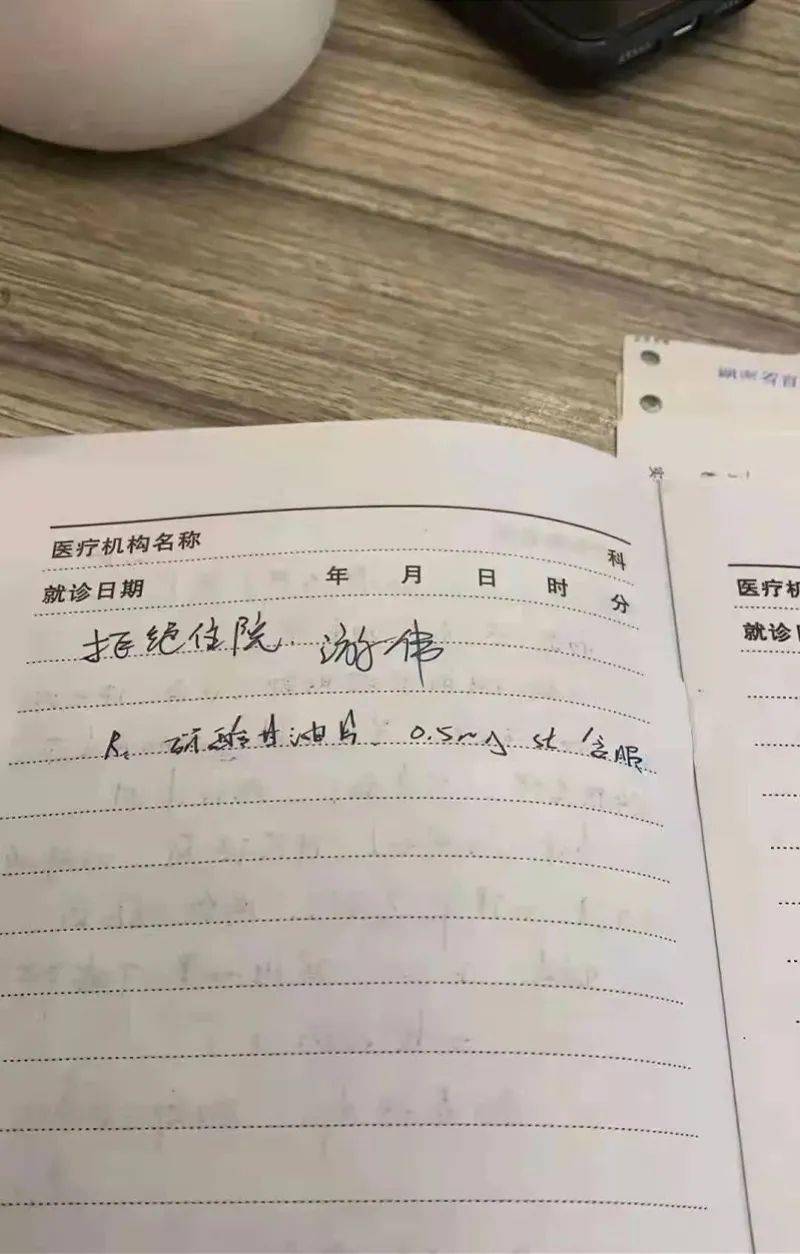 医疗机构名称 科
就诊日期 年 月 日 时 分
拒绝住院. 游伟
R: 硝酸甘油片 0.5mg st 含服
医疗机
就诊日